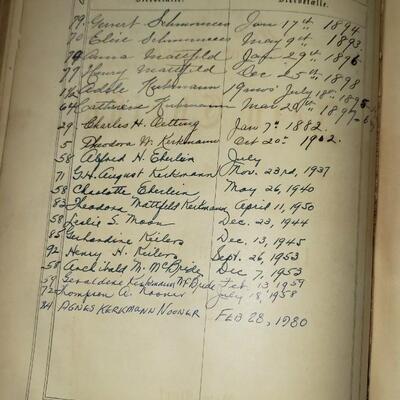 Sterbefälle. Sterbefälle.
79 Gevert Schumacco Jan 17th 1894
70 Elise Schumacco May 9th 1893
79 Anna Mattfeld Jan 29th 1896
77 Henry Mattfeld Dec 25th 1898
1½ Adele Kerkmann 19mos July 18th 1895
64 Catherine Kerkmann Mar 20th 1897
29 Charles H. Oetting Jan 7th 1882
5 Theodora W. Kerkmann Oct 20th 1902
58 Alfred H. Eberlein July
71 G.H. August Kerkmann Nov. 23rd, 1937
58 Charlotte Eberlein May 26, 1940
83 Theodora Mattfeld Kerkmann April 11, 1950
58 Leslie S. Moon Dec. 23, 1944
85 Gerhardine Keilers Dec. 13, 1945
92 Henry H. Keilers Sept. 26, 1953
58 Archibald M. McBride Dec 7, 1953
59 Geraldine Kerkmann McBride Feb 13, 1959
72 Thompson A. Nooner July 18, 1958
84 AGNES KERKMANN NOONER FEB 28, 1980